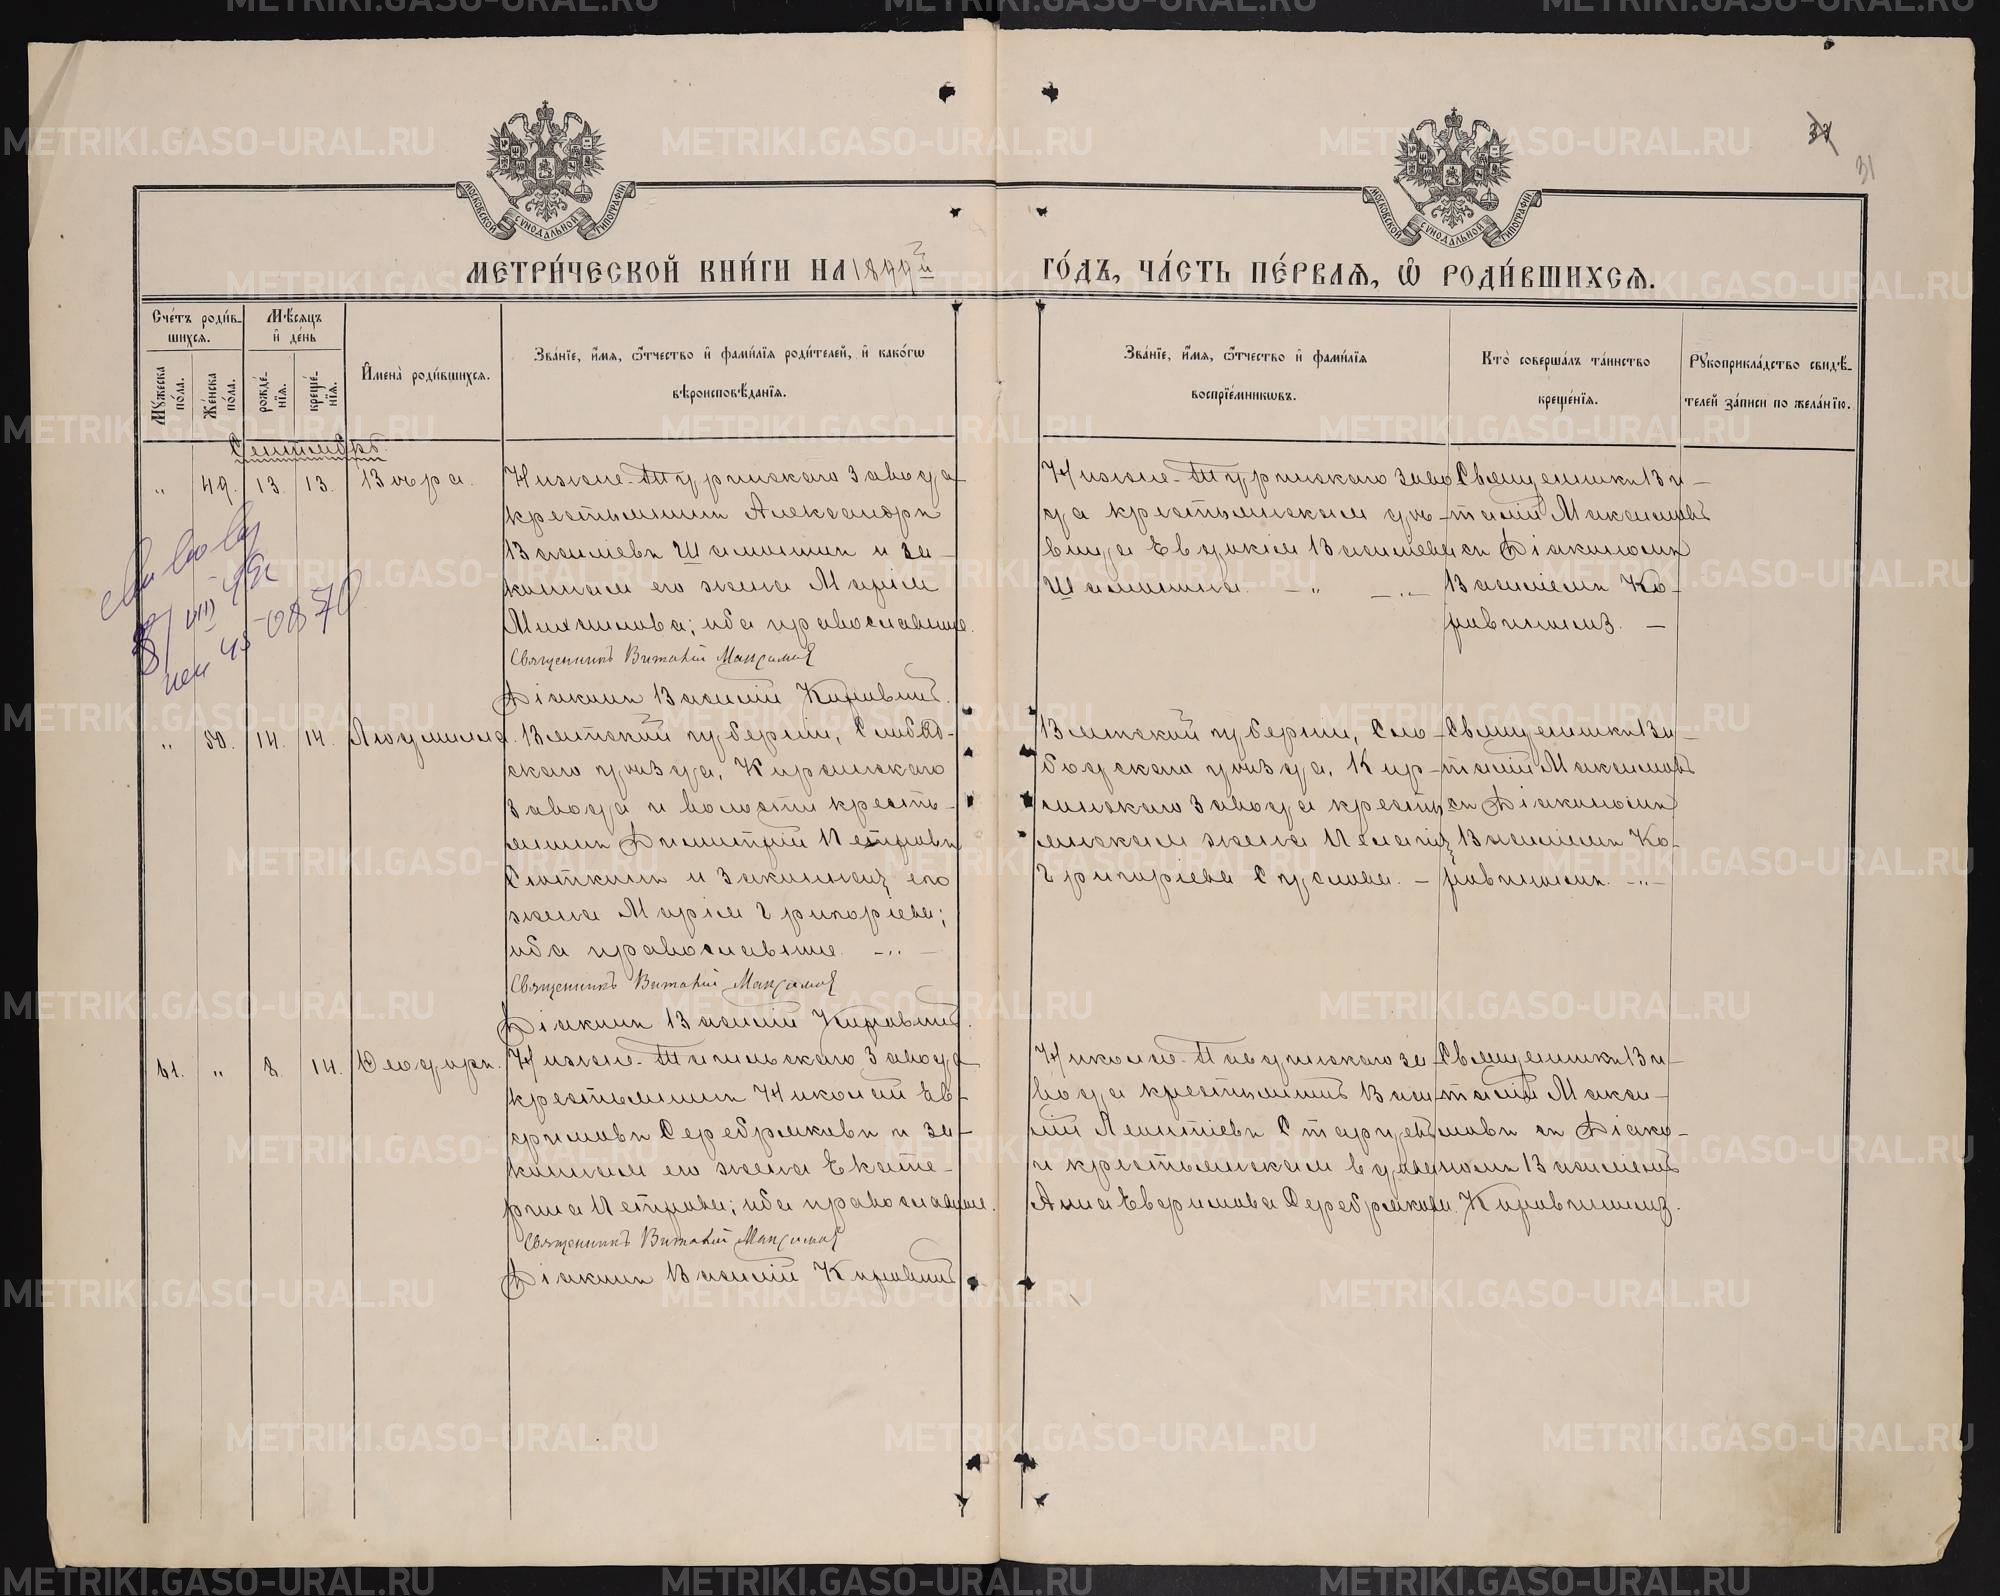 31
МОСКОВСКОЙ СѴНОДАЛЬНОЙ ТИПОГРАФІИ
МОСКОВСКОЙ СѴНОДАЛЬНОЙ ТИПОГРАФІИ
МЕТРИ́ЧЕСКОЙ КНИ́ГИ НА 1899й ГО́ДЪ, ЧА́СТЬ ПЕ́РВАѦ, Ѽ РОДИ́ВШИХСѦ.
Сче́тъ роди́вшихсѧ.
Мꙋ́жеска по́ла.
Же́нска по́ла.
Мѣ́сѧцъ и҆ де́нь
рожде́нїѧ.
креще́нїѧ.
И҆мена̀ роди́вшихсѧ.
Зва́нїе, и҆́мѧ, ѻ҆́тчество и҆ фами́лїѧ роди́телей, и҆ како́гѡ
вѣроисповѣ́данїѧ.
Зва́нїе, и҆́мѧ, ѻ҆́тчество и҆ фами́лїѧ
воспрїе́мникѡвъ.
Кто̀ соверша́лъ та́инство
креще́нїѧ.
Рꙋкоприкла́дство свидѣ́-
телей за́писи по жела́нїю.
Сентябрь.
„ 49. 13. 13. Вѣра.
Нижне-Туринскаго завода
крестьянинъ Александръ
Васильевъ Шамшинъ и за-
конная его жена Марія
Михаилова; оба православные.
Священникъ Виталій Максимов
Діаконъ Василій Коровинъ.
Нижне-Туринскаго заво
да крестьянская дѣ-
вица Евдокія Васильева
Священникъ Ви-
талій Максимовъ
съ Діакономъ
Василіемъ Ко-
ровинымъ. —
„ 50. 14. 14. Людмила.
Вятской губерніи, Слобод-
скаго уѣзда, Кирсинскаго
завода и волости кресть-
янинъ Димитрій Петровъ
и законная его
жена Марія Григорьева;
оба православные. — „ —
Священникъ Виталій Максимов
Діаконъ Василій Коровинъ.
Вятской губерніи, Сло-
бодскаго уѣзда, Кир-
синскаго завода кресть
янская жена Пелагія
Григорьева Суслова. —
Священникъ Ви-
талій Максимовъ
съ Діакономъ
Василіемъ Ко-
ровинымъ. — „ —
61. „ 8. 14. Ѳеодоръ.
Нижне-Тагильскаго завода
крестьянинъ Николай Ев-
фимовъ Серебряковъ и за-
конная его жена Екате-
рина Петрова; оба православные.
Священникъ Виталій Максимов
Діаконъ Василій Коровинъ
Николае-Павдинскаго за-
вода крестьянинъ Васи-
лій Леонтіевъ Старцевъ
и крестьянская вдова
Анна Евфимова Серебрякова.
Священникъ Ви-
талій Макси-
мовъ съ Діако-
номъ Василіемъ
Коровинымъ.
METRIKI.GASO-URAL.RU